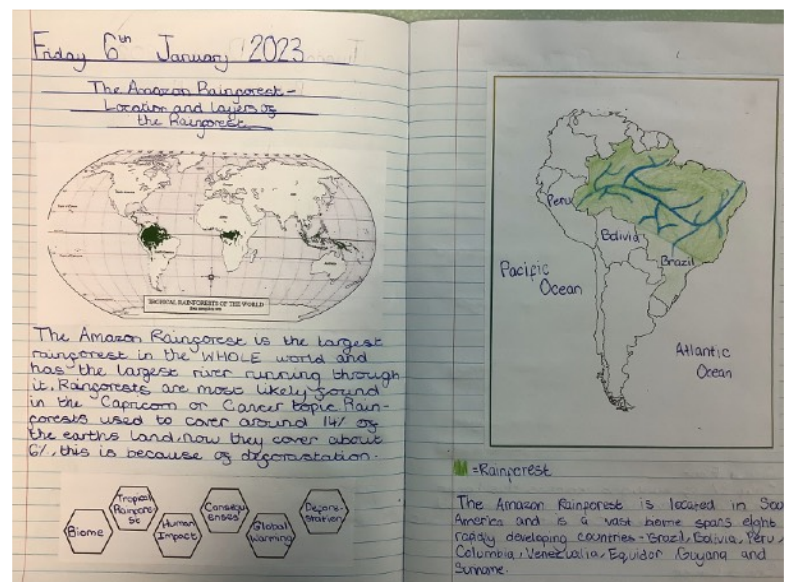 Friday 6th January 2023
The Amazon Rainforest -
Location and layers of
the Rainforest
TROPICAL RAINFORESTS OF THE WORLD
The Amazon Rainforest is the largest
rainforest in the WHOLE world and
has the largest river running through
it. Rainforests are most likely found
in the Capricorn or Cancer topic Rain-
forests used to cover around 14% of
the earths land, now they cover about
6%, this is because of deforastation.
Biome
Tropical
Rainfore
st
Human
Impact
Consequ
enses
Global
Warming
Defore-
station
Peru
Bolivia
Brazil
Pacific
Ocean
Atlantic
Ocean
=Rainforest
The Amazon Rainforest is located in Sou
America and is a vast biome spans eight
rapidly developing countries - Brazil, Bolivia, Peru,
Columbia, Venezualia, Equidor Guyana and
Suriname.